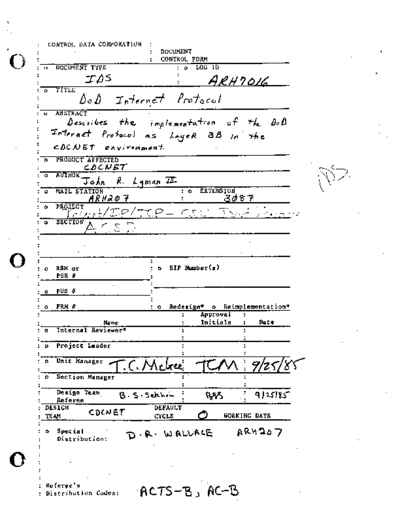 CONTROL DATA CORPORATION
DOCUMENT
CONTROL FORM
o DOCUMENT TYPE
o LOG ID
IDS
ARH7016
o TITLE
DoD Internet Protocol
o ABSTRACT
Describes the implementation of the DoD
Internet Protocol as Layer 3B in the
CDCNET environment.
o PRODUCT AFFECTED
CDCNET
o AUTHOR
John R. Lyman III
o MAIL STATION
o EXTENSION
ARH207
3087
o PROJECT
/IP/TCP -
o SECTION
ACSD
o RSM or
PSR #
o SIP Number(s)
o PUB #
o FRM #
o Redesign* o Reimplementation*
Approval
Name
Initials
Date
o Internal Reviewer*
o Project Leader
o Unit Manager
T.C. McKee
TCM
9/25/85
o Section Manager
Design Team
Referee
B.S.
9/25/85
DESIGN
TEAM
CDCNET
DEFAULT
CYCLE
0
WORKING DAYS
o Special
Distribution:
D.R. WALLACE
ARH207
Referee's
Distribution Codes:
ACTS-B, AC-B